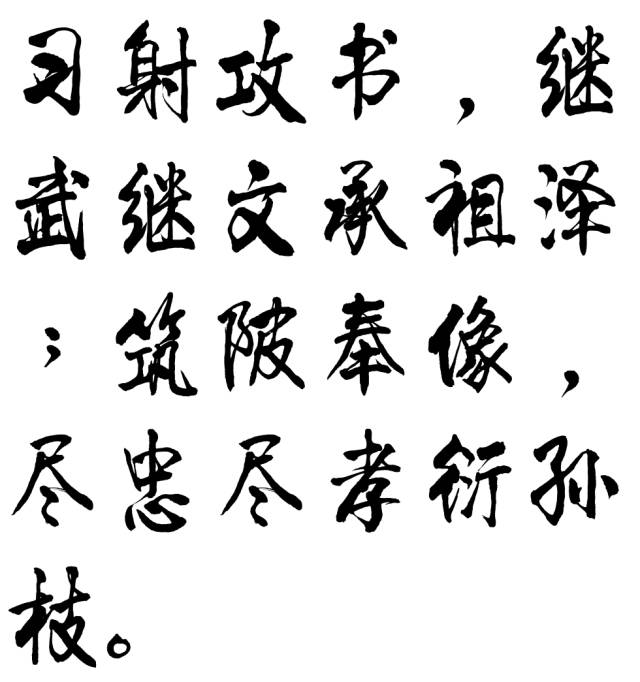 习射攻书，继
武继文承祖泽
；筑陂奉像，
尽忠尽孝衍孙
枝。